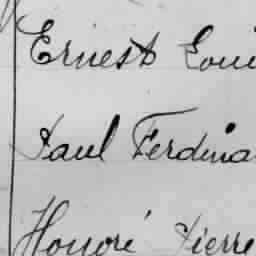 Ernest Loui
Paul Ferdina
Honoré Pierre